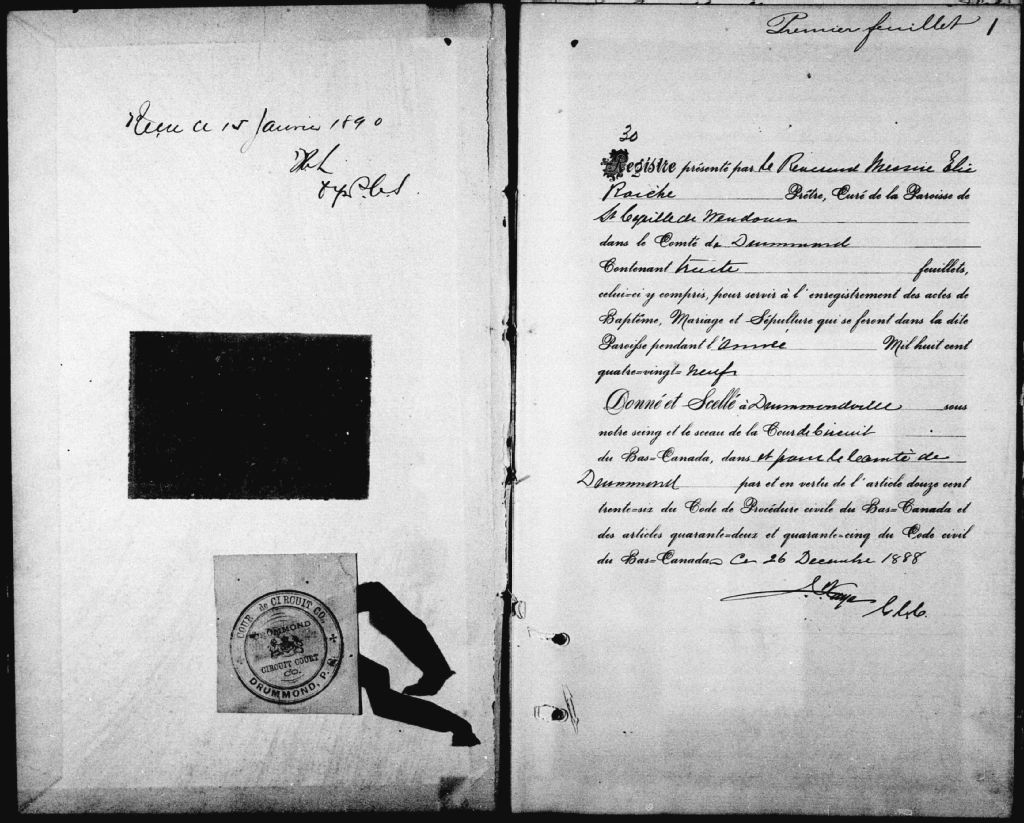 Reçu ce 15 Janvier 1890
COUR de CIRCUIT CO.
DRUMMOND
CIRCUIT COURT
CO.
DRUMMOND, P.Q.
Premier feuillet 1
30
Registre présenté par le Révérend Messire Elie
Roiche Prêtre, Curé de la Paroisse de
St Cyrille de Wendover
dans le Comté de Drummond
Contenant trente feuillets,
celui=ci y compris, pour servir à l'enregistrement des actes de
Baptême, Mariage et Sépulture qui se feront dans la dite
Paroisse pendant l'année Mil huit cent
quatre=vingt= neuf
Donné et Scellé à Drummondville sous
notre seing et le sceau de la Cour de Circuit
du Bas=Canada, dans et pour le Comté de
Drummond par et en vertu de l'article douze cent
trente=six du Code de Procédure civile du Bas=Canada et
des articles quarante=deux et quarante=cinq du Code civil
du Bas=Canada Ce 26 Decembre 1888